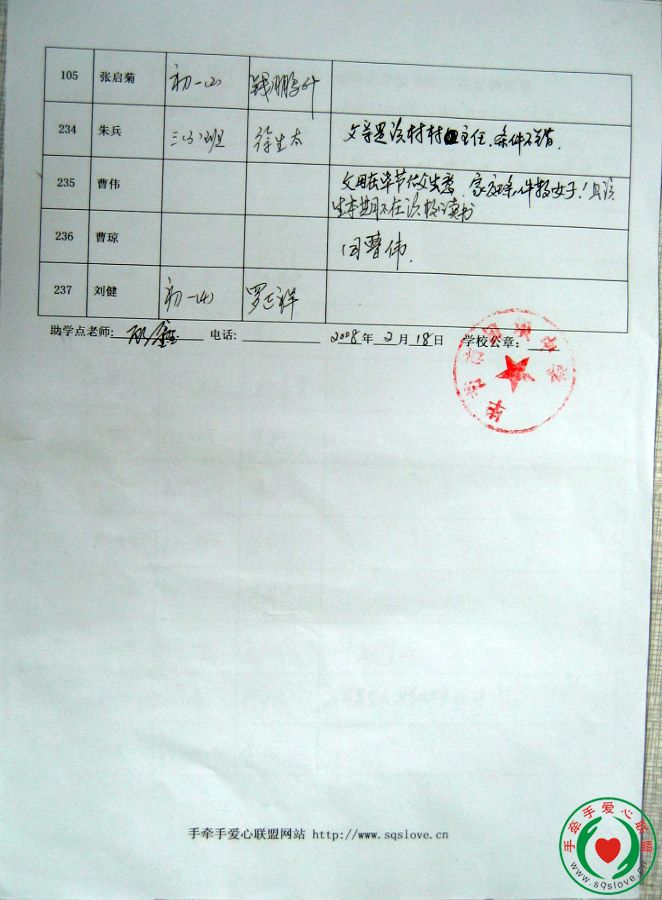 105 张启菊 初一(4) 钱鹏升
234 朱兵 三(3)班 徐生太 父亲是该村村主任,条件不错.
235 曹伟 家庭条件较好!且该
生本期不在该校读书
236 曹琼 同曹伟.
237 刘健 初一(4) 罗正祥
助学点老师: 电话: 2008年2月18日 学校公章:
手牵手爱心联盟网站 http://www.sqslove.cn
手牵手爱心联盟
www.sqslove.cn